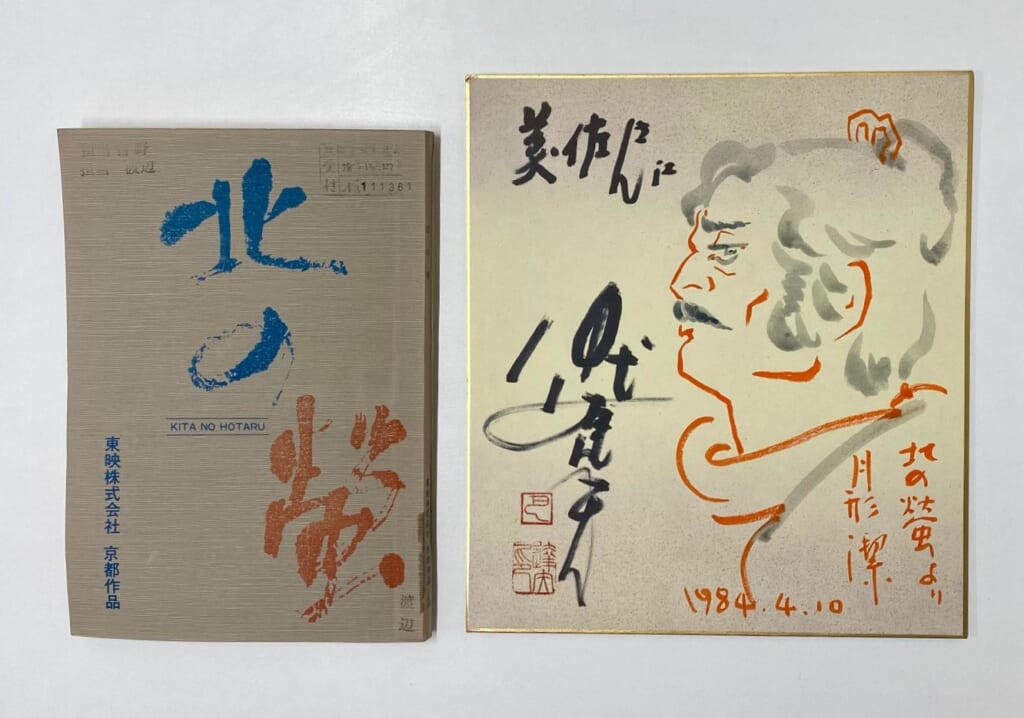 北の蛍
KITA NO HOTARU
東映株式会社 京都作品
渡辺
111361
美佐さんに
仲代達矢
北の螢より
月形 潔
1984.4.10